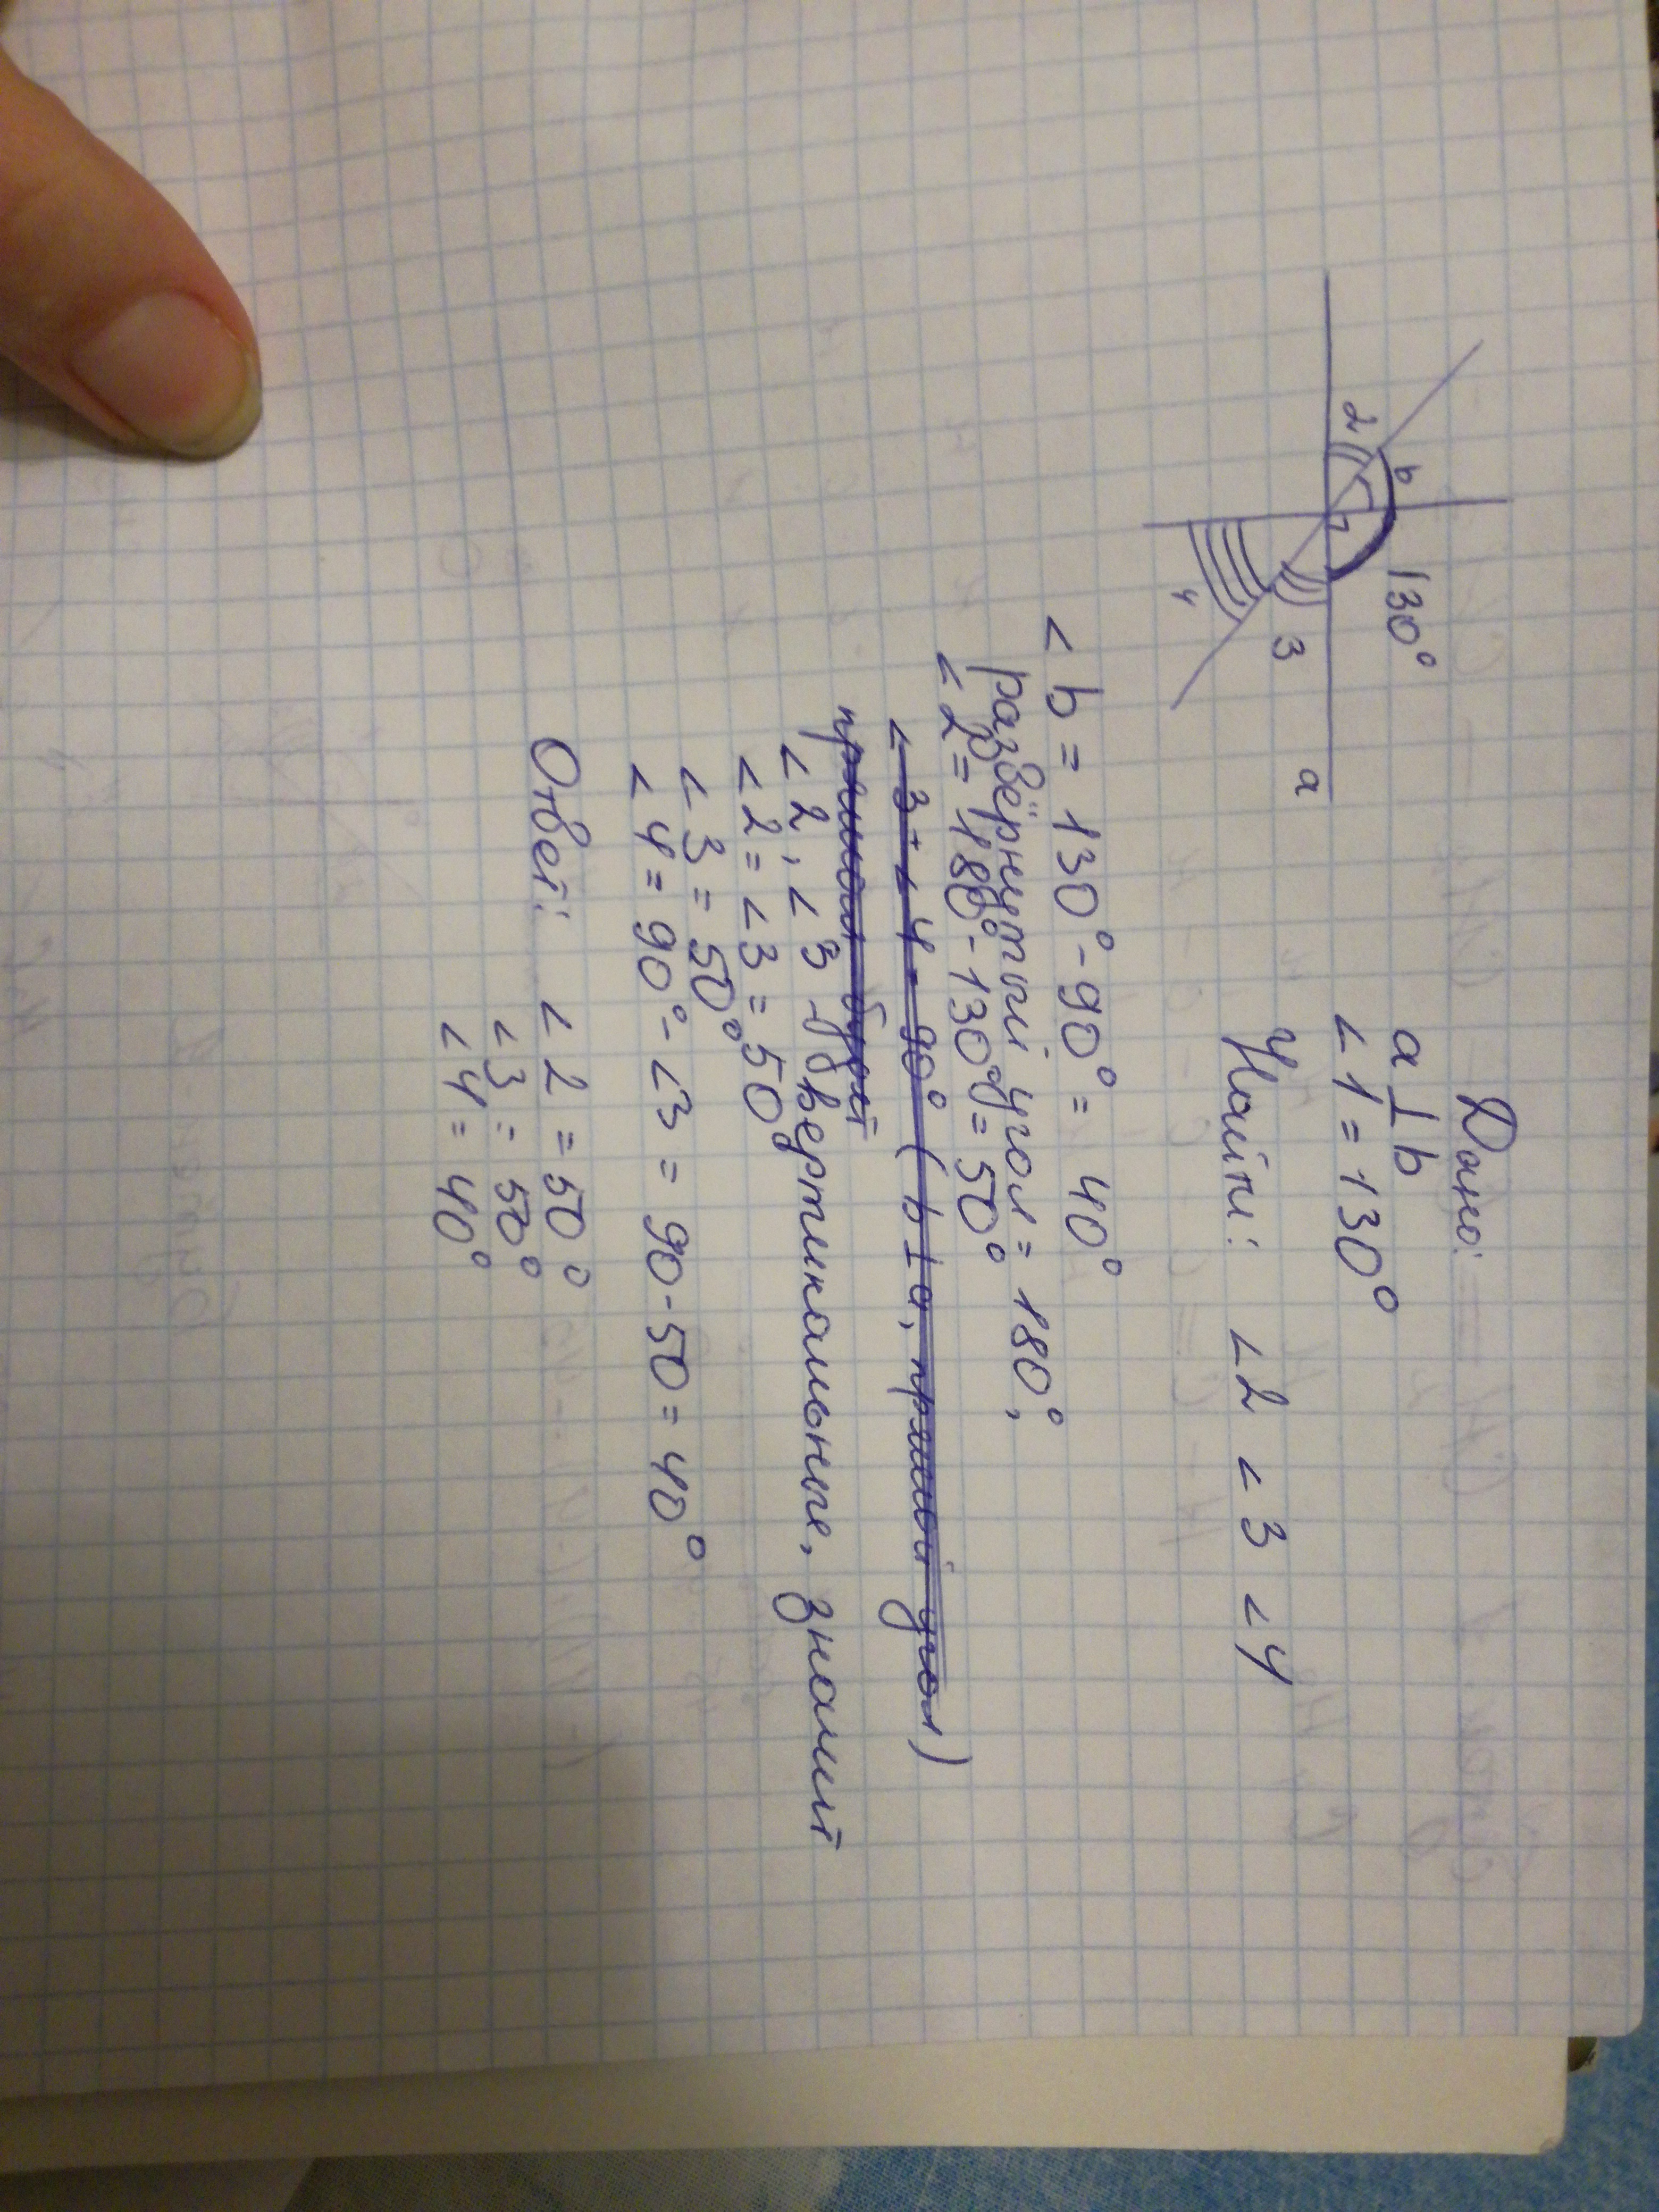 Дано:
a ⊥ b
∠1 = 130°
Найти: ∠2 ∠3 ∠4
130°
b
2
3
4
a
∠b = 130° - 90° = 40°
развёрнутый угол = 180°,
∠2 = 180° - 130° = 50°
∠3 + ∠4 = 90° (b ⊥ a, прямой угол)
∠2, ∠3 - вертикальные, значит
∠2 = ∠3 = 50°
∠3 = 50°
∠4 = 90° - ∠3 = 90 - 50 = 40°
Ответ: ∠2 = 50°
∠3 = 50°
∠4 = 40°